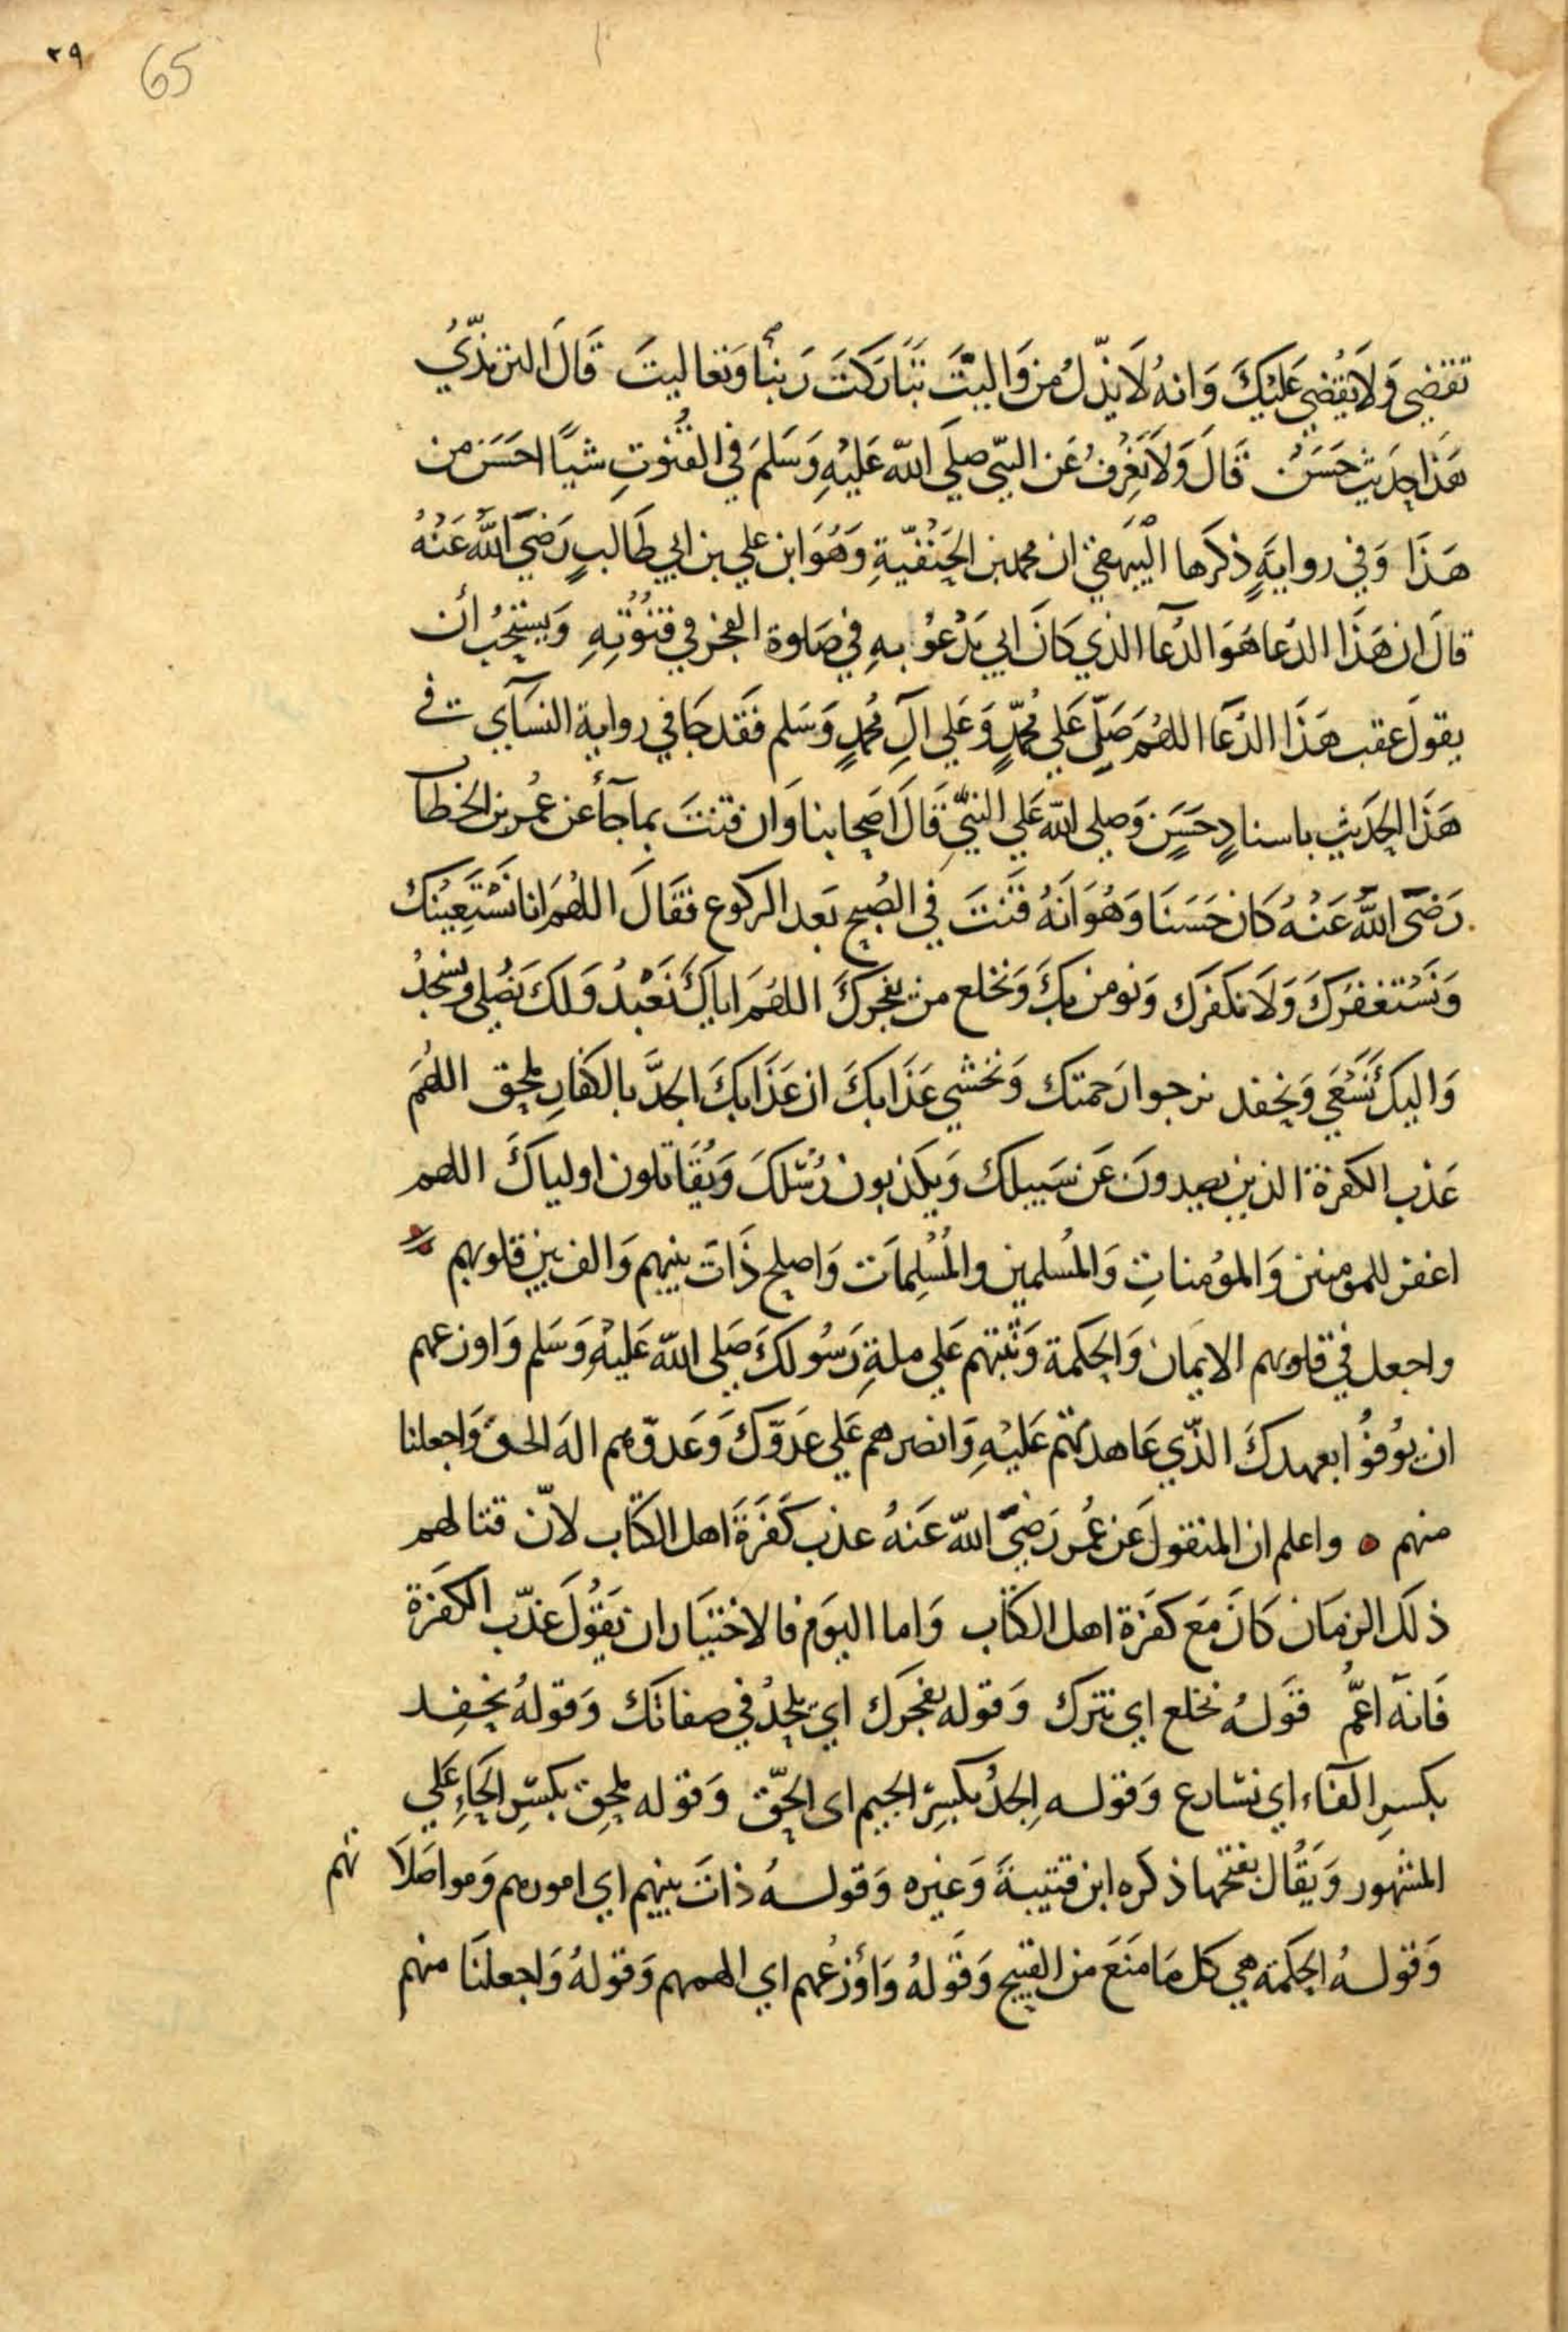 ٢٩ 65
تقضي وَلَا يُقضي عَليْكَ وَانهُ لَا يَذِلُّ مِن وَاليْتَ تَبَارَكتَ رَبنا وَتعاليتَ قَالَ الترمذيُّ
هَذا حديث حَسَنٌ قَالَ وَلَا نعْرِفُ عَن النبّي صلي الله عَليْهِ وَسَلمَ في القُنوتِ شيأً احسَن من
هَذَا وَفي روايَةٍ ذكرَها البْيَهَقي ان محمد بن الحَنفيّةِ وَهُوَ ابن علي بن ابي طَالبٍ رَضيَ اللهُ عَنْهُ
قالَ ان هَذَا الدّعا هَوَ الدّعَآ الذي كَانَ ابي يَدْعوْ بهِ في صَلوة الفجر في قنُوتِهِ وَيستحِبُ أن
يقولَ عقب هَذَا الدّعَا اللهُمَ صَلِّ عَلي مُحمدٍّ وَعَلي آلِ مُحمدٍ وَسَلم فقَد جَا في رواية النسَآي في
هَذَا الحَديث باسنادٍ حَسَنٍ وَصلي الله عَلي النبيِّ قَالَ اصحابنا وَان قنتَ بما جآء عن عُمر بن الخطاب
رَضيَ اللهُ عَنْهُ كَان حَسَنَا وَهُوَ انَهُ قَنَتَ في الصُبح بَعد الركوع فقَالَ اللهُمَ انا نسْتَعِيْنكَ
وَنَسْتغفرُكَ وَلَا نكفرَك وَنومن بكَ وَنخلع من يفجركَ اللهُمَ اياكَ نَعْبدُ وَلكَ نصُلي وَنسجدُ
وَاليكَ نَسْعَي وَنحفد نرجوا رَحمتك وَنخشي عَذَابكَ ان عَذَابكَ الجدَّ بالكفارِ ملحق اللهُمَ
عَذب الكفرة الذين يصدونَ عَن سَبيلك وَيكذبون رُسُلكَ وَيُقَاتلون اولياكَ اللهم
اغفر للمومنين وَالموُمناتِ وَالمُسلمين والمُسْلِماَت وَاصلح ذَاتَ بينهم وَالف بين قلوبهم
واجعل في قلوبهم الايمَان وَالحِكمة وَثبتهم عَلي ملةِ رَسُولكَ صَلي الله عَليْهِ وَسَلم وَاوزعهم
ان يوُفوُا بعهدكَ الذّي عَاهدتهم عَليْهِ وَانصرهم عَلي عَدوّكَ وَعَدوّهم الهَ الحق وَاجعلنا
منهم ۝ واعلم ان المنقولَ عَن عُمر رَضيَ الله عَنهُ عذب كَفَرَةَ اهل الكتَاب لانّ قتالهم
ذلكَ الزمَان كَانَ مَع كفَرَة اهل الكتَاب وَاما اليَوم فالاختيَار ان يَقوُلَ عَذّب الكفَرة
فَانهَ اعمُّ قوَلُه نخلع اي نترك وَقوله يفجرَك اي يلحدُ في صفاتك وَقولهُ نحفِد
بكسرِ الفاءِ اي نسَارع وَقوله الجِدُّ بكسِر الجيم اي الحَقّ وَقوله ملحِق بكسّرِ الحَاءِ عَلي
المشهور وَيقُال بفتحها ذكره ابن قتيبةَ وَغيره وَقولهُ ذاتَ بينهم اي امورهم وَمواصَلاتهم
وَقولهُ الحِكمَة هي كل مَا منَعَ من القبيح وَقَولهُ وَأوْزعُهم اي الهمهم وَقولهُ وَاجعلنَا منهم